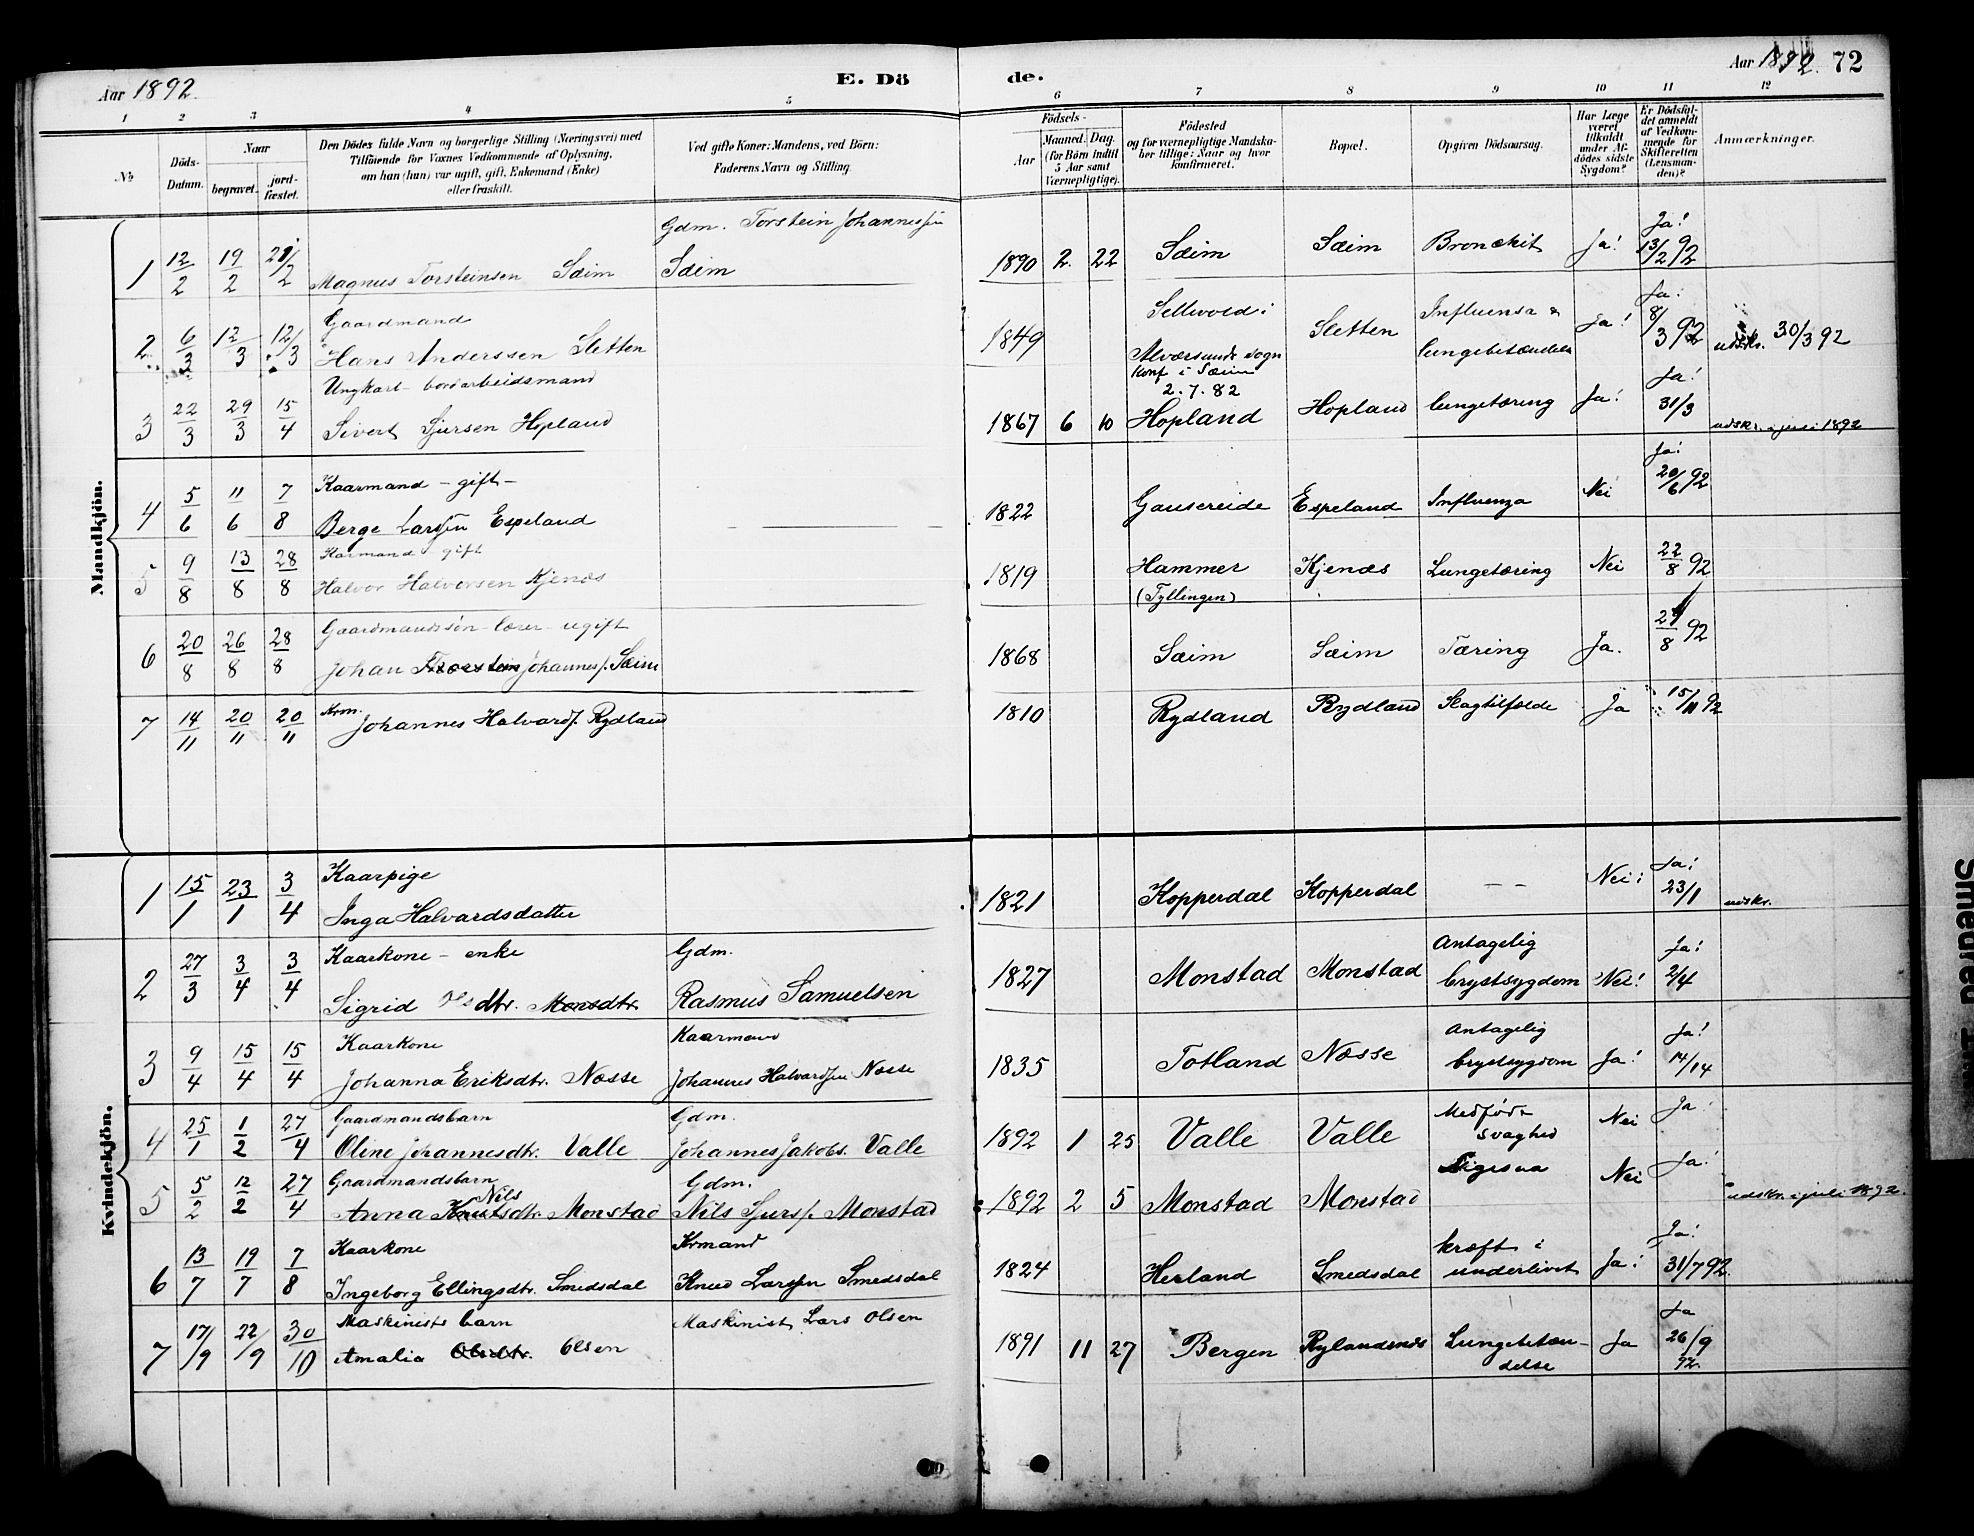 Aar 1892.
E. Dö
de.
Aar 1892. 72
1 2 3 4 5 6 7 8 9 10 11 12
No
Döds-Datum.
Naar
begravet.
jord-fæstet.
Den Dödes fulde Navn og borgerlige Stilling (Næringsvei) med
Tilföiende for Voxnes Vedkommende af Oplysning,
om han (hun) var ugift, gift, Enkemand (Enke)
eller fraskilt.
Ved gifte Koner: Mandens, ved Börn:
Faderens Navn og Stilling.
Födsels-
Aar
Maaned. Dag.
(for Börn indtil
5 Aar samt
Værnepligtige).
Födested
og for værnepligtige Mandska-
ber tillige: Naar og hvor
konfirmeret.
Bopæl.
Opgiven Dödsaarsag.
Har Læge
været
tilkaldt
under Af-
dödes sidste
Sygdom?
Er Dödsfal-
det anmeldt
af Vedkom-
mende for
Skifteretten
(Lensman-
den)?
Anmærkninger.
Mandkjön.
Gdm. Torstein Johannessen
1 12/2 19/2 21/2 Magnus Torsteinsen Sæim Sæim 1890 2. 22 Sæim Sæim Bronchit Ja! Ja! 13/2 92
Gaardmand Sellevold i Influensa & Ja!
2 6/3 12/3 12/3 Hans Anderssen Sletten 1849 Alværsunds sogn Sletten lungebetændelse Ja! 8/3 92 udskr. 30/3 92
Ungkarl - bordarbeidsmand konf i Sæim 2.7.82 Ja!
3 22/3 29/3 15/4 Sivert Sjursen Hopland 1867 6 10 Hopland Hopland lungetæring Ja! 31/3 udskr. i juli 1892
Kaarmand - gift - Ja!
4 5/6 11/6 7/8 Berge Larssen Espeland 1822 Gausereide Espeland Influenza Nei 20/6 92
Kaarmand gift
5 9/8 13/8 28/8 Halvor Halvorsen Kjenæs 1819 Hammer Kjenæs Lungetæring Nei 22/8 92
(Tyllingen)
Gaardmandssön - lærer - ugift
6 20/8 26/8 28/8 Johan Johannes. Sæim 1868 Sæim Sæim Tæring Ja. 8 92
7 14/11 20/11 20/11 Krm. Johannes Halvards. Rydland 1810 Rydland Rydland Slagtilfælde Ja 15/11 92
Kvindekjön.
Kaarpige Ja!
1 15/1 23/1 3/4 Inga Halvardsdatter 1821 Kopperdal Kopperdal - - Nei! 23/1 udskr.
Kaarkone - enke Gdm. Antagelig Ja!
2 27/3 3/4 3/4 Sigrid Olsdtr. Monsdtr Rasmus Samuelsen 1827 Monstad Monstad brystsygdom Nei! 2/4
Kaarkone Kaarmand Antagelig Ja!
3 9/4 15/4 15/4 Johanna Eriksdtr. Næsse Johannes Halvardsen Næsse 1835 Totland Næsse brystsygdom Ja! 14/14
Gaardmandsbarn Gdm. Medfødt Ja
4 25/1 1/2 27/4 Oline Johannesdtr. Valle Johannes Jakobs. Valle 1892 1 25 Valle Valle svaghed Nei
Gaardmandsbarn Gdm. Ligesaa Ja!
5 5/2 12/2 27/4 Anna Knutsdtr Nils Monstad Nils Sjurs. Monstad 1892 2 5 Monstad Monstad Nei udskr. i juli 1892.
Kaarkone Krmand kræft i Ja!
6 13/7 19/7 7/8 Ingeborg Ellingsdtr. Smedsdal Knud Larssen Smedsdal 1824 Herland Smedsdal underlivet Ja! 31/7 92.
Maskinists barn Maskinist Lars Olsen Ja
7 17/9 22/9 30/10 Amalia Olsdtr. Olsen 1891 11 27 Bergen Rylandsnes Lungebetæn-delse Ja 26/9 92.